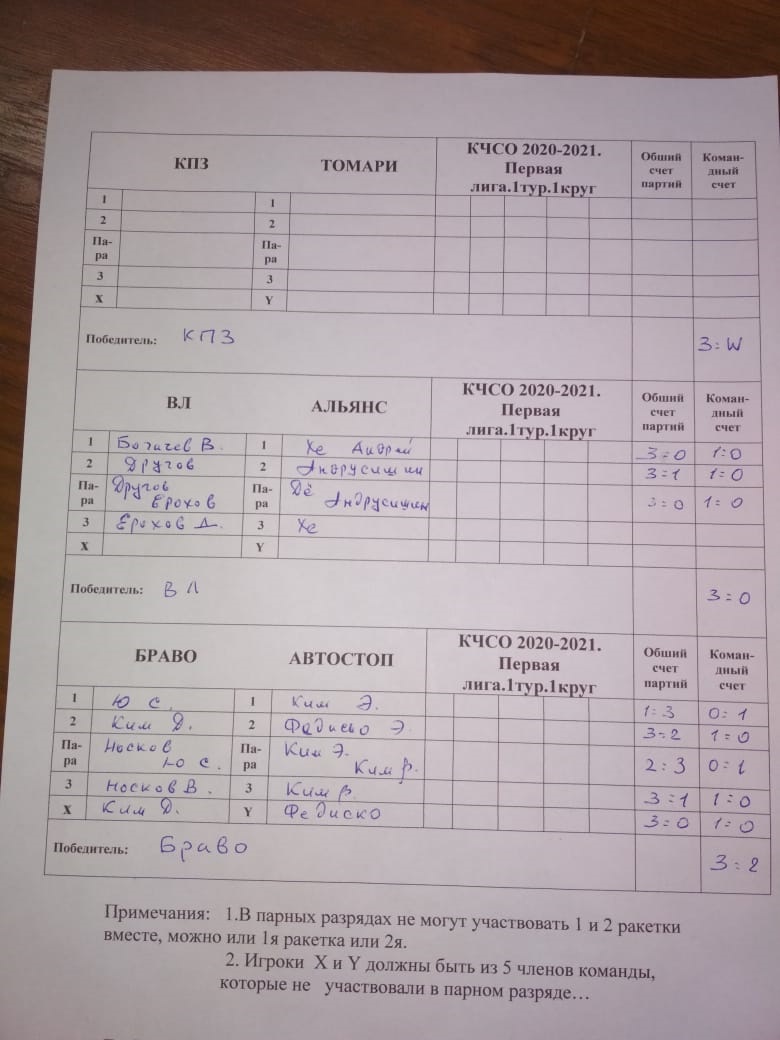 КПЗ ТОМАРИ КЧСО 2020-2021. Первая лига.1тур.1круг Общий счет партий Коман-дный счет
1 1
2 2
Па-ра Па-ра
3 3
X Y
Победитель: КПЗ 3:W
ВЛ АЛЬЯНС КЧСО 2020-2021. Первая лига.1тур.1круг Общий счет партий Коман-дный счет
1 Богачев В. 1 Хе Андрей 3=0 1:0
2 Другов 2 Андрусишин 3=1 1=0
Па-ра Другов Ерохов Па-ра Дё Андрусишин 3=0 1=0
3 Ерохов Д. 3 Хе
X Y
Победитель: ВЛ 3=0
БРАВО АВТОСТОП КЧСО 2020-2021. Первая лига.1тур.1круг Общий счет партий Коман-дный счет
1 Ю С. 1 Ким Э. 1:3 0:1
2 Ким Д. 2 Э. 3=2 1=0
Па-ра Носков Ю С. Па-ра Ким Э. Ким Р. 2:3 0:1
3 Носков В. 3 Ким Р. 3=1 1=0
X Ким Д. Y Федиско 3=0 1=0
Победитель: Браво 3=2
Примечания: 1.В парных разрядах не могут участвовать 1 и 2 ракетки
вместе, можно или 1я ракетка или 2я.
2. Игроки X и Y должны быть из 5 членов команды,
которые не участвовали в парном разряде…